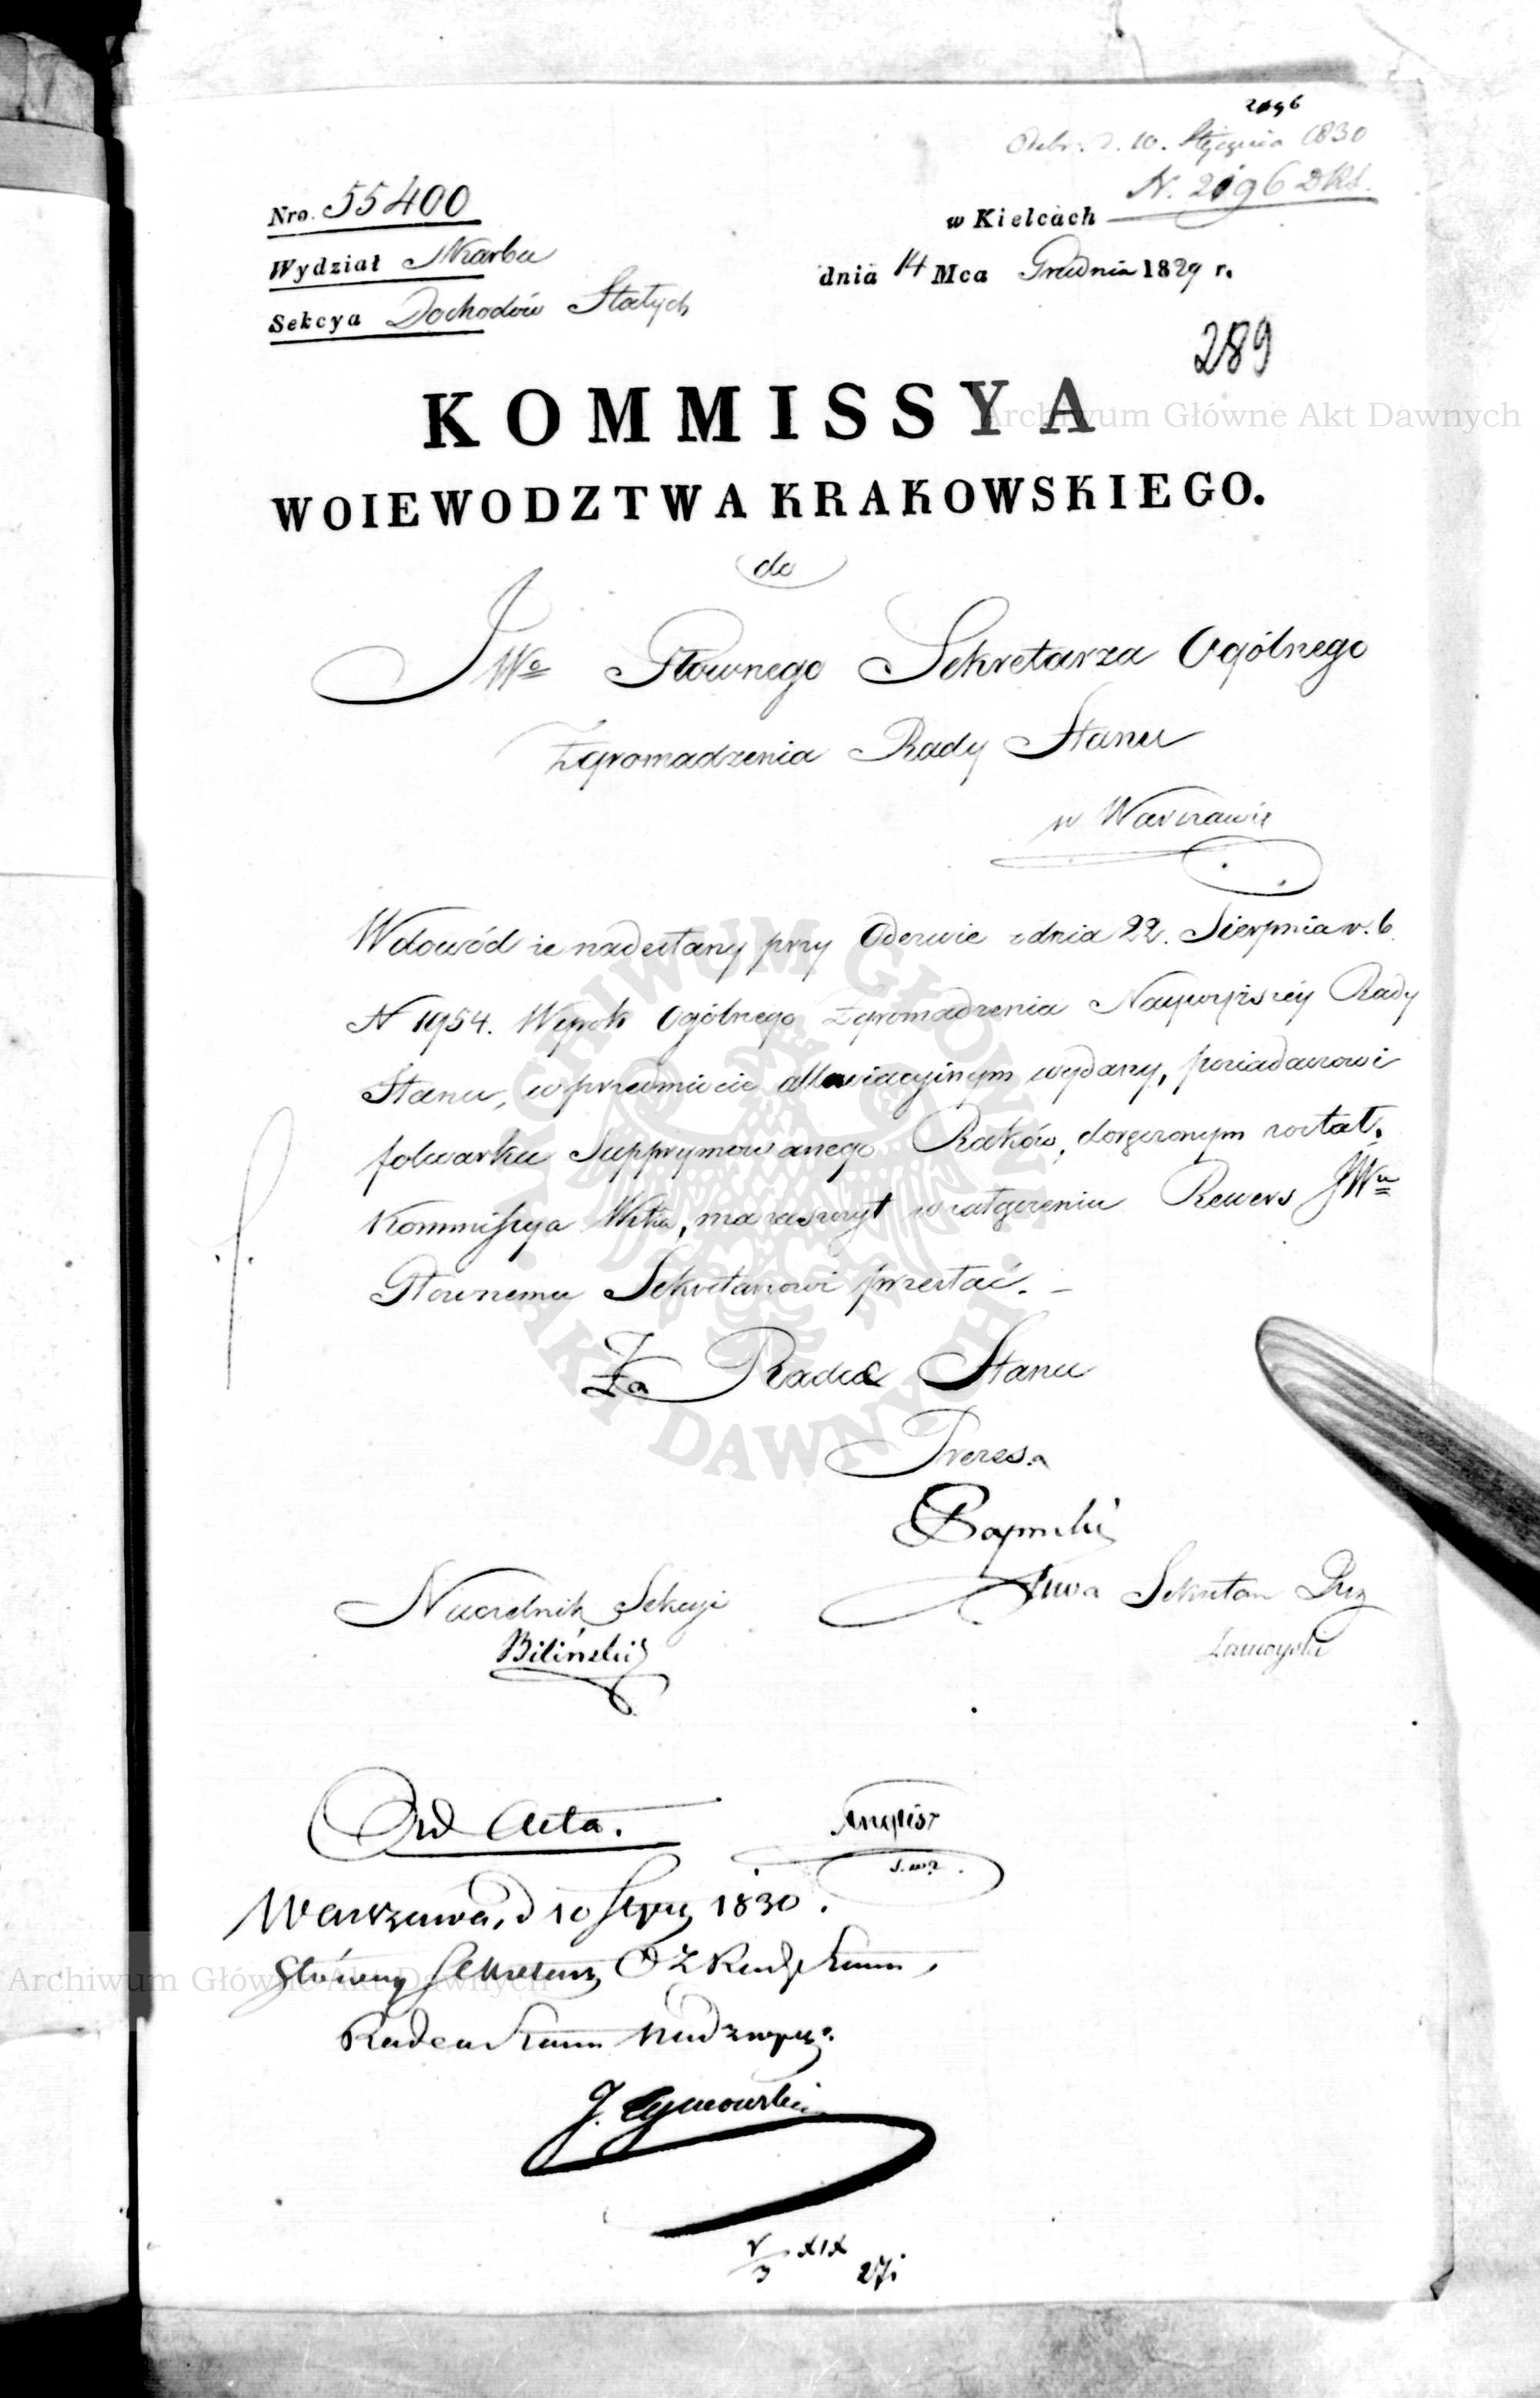 2196
Odebr: d. 10. Stycznia 1830
N. 2196 DRS.
Nro. 55400
w Kielcach
Wydział Skarbu
dnia 14 Mca Grudnia 1829 r.
Sekcya Dochodów Stałych
289
KOMMISSYA
WOIEWODZTWA KRAKOWSKIEGO.
do
JWo Głownego Sekretarza Ogólnego
Zgromadzenia Rady Stanu
w Warszawie
Wdowód że nadesłany przy Odezwie z dnia 22. Sierpnia r. b.
N 1954. Wyrok Ogólnego Zgromadzenia Naywyższéy Rady
Stanu, w przedmiocie alluwiacyinym wydany, posiadaczowi
folwarku Supprymowanego Raków, doręczonym został.
Kommissya Wtka, ma zaszczyt w załączeniu Rewers JWu
Głownemu Sekretarzowi przesłać. –
Za Radcę Stanu
Prezesa
Sekretarz
Naczelnik Sekcyi
Biliński
Zamoyski
Ad Acta.
Warszawa, d 10 Stycz 1830.
Główny Sekretarz O Z Rady Stanu,
Radca Stanu Nadzwycz:
J. Tymowski
XIX
27
Archiwum Główne Akt Dawnych
Archiwum Główne Akt Dawnych
ARCHIWUM GŁÓWNE AKT DAWNYCH